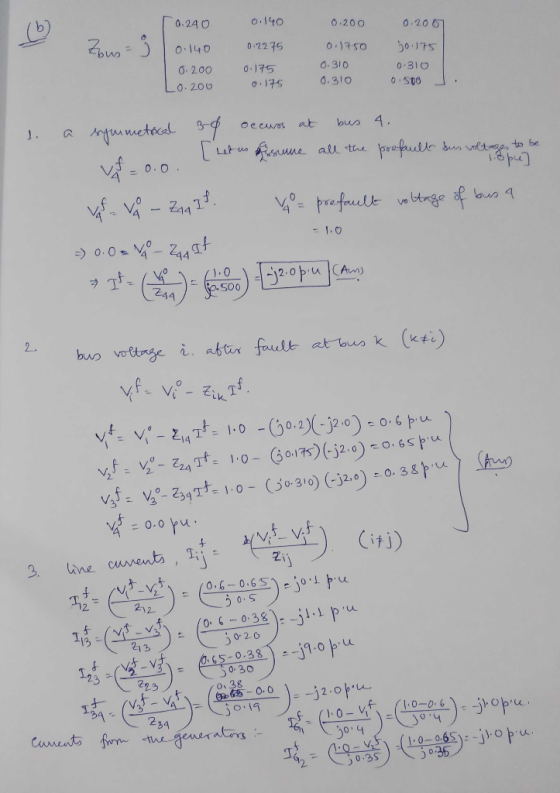 (b)
Zbus = j [ 0.240 0.140 0.200 0.200
0.140 0.2275 0.1750 j0.175
0.200 0.175 0.310 0.310
0.200 0.175 0.310 0.500 ].
1. a symmetrical 3-φ occurs at bus 4.
[Let us assume all the prefault bus voltages to be 1.0 pu]
V4^f = 0.0.
V4^f = V4^0 - Z44 I^f. V4^0 = prefault voltage of bus 4
= 1.0
⇒ 0.0 = V4^0 - Z44 I^f
⇒ I^f = (V4^0/Z44) = (1.0/j0.500) = -j2.0 p.u (Ans)
2. bus voltage i. after fault at bus k (k≠i)
Vi^f = Vi^0 - Zik I^f.
V1^f = V1^0 - Z14 I^f = 1.0 - (j0.2)(-j2.0) = 0.6 p.u
V2^f = V2^0 - Z24 I^f = 1.0 - (j0.175)(-j2.0) = 0.65 p.u
V3^f = V3^0 - Z34 I^f = 1.0 - (j0.310)(-j2.0) = 0.38 p.u
V4^f = 0.0 pu. (Ans).
3. line currents, Iij^f = (Vi^f - Vj^f / zij) (i≠j)
I12^f = (V1^f - V2^f / z12) = (0.6-0.65 / j0.5) = j0.1 p.u
I13^f = (V1^f - V3^f / z13) = (0.6-0.38 / j0.20) = -j1.1 p.u
I23^f = (V2^f - V3^f / z23) = (0.65-0.38 / j0.30) = -j9.0 p.u
I34^f = (V3^f - V4^f / z34) = (0.38-0.0 / j0.19) = -j2.0 p.u
Currents from the generators :-
IG1^f = (1.0-V1^f / j0.4) = (1.0-0.6 / j0.4) = -j1.0 p.u.
IG2^f = (1.0-V2^f / j0.35) = (1.0-0.65 / j0.35) = -j1.0 p.u.